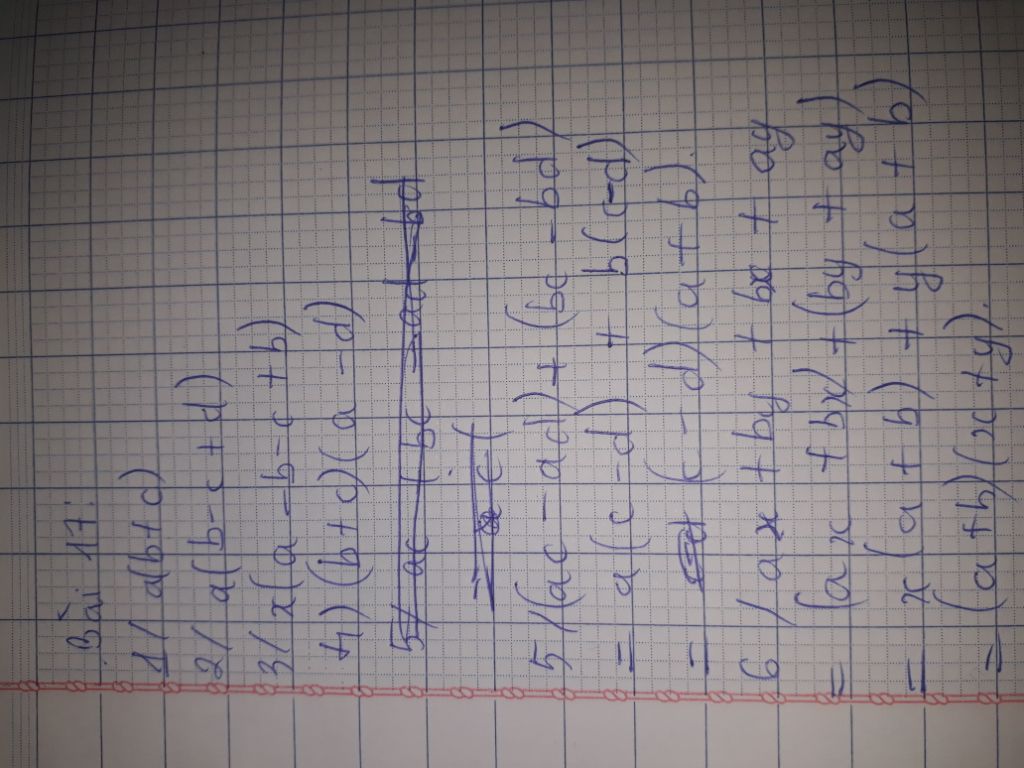 Bài 17:
1/ a(b+c)
2/ a(b-c+d)
3/ x(a-b-c+b)
4) (b+c)(a-d)
5/ ac + bc - ad - bd
= c(
5/(ac-ad)+(bc-bd)
= a(c-d) + b(c-d)
= (c-d)(a+b).
6/ax+by+bx+ay
= (ax+bx)+(by+ay)
= x(a+b)+y(a+b)
= (a+b)(x+y).